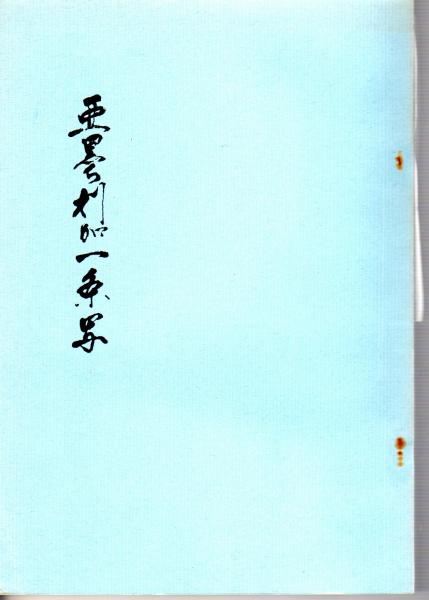 亜墨利加一条写